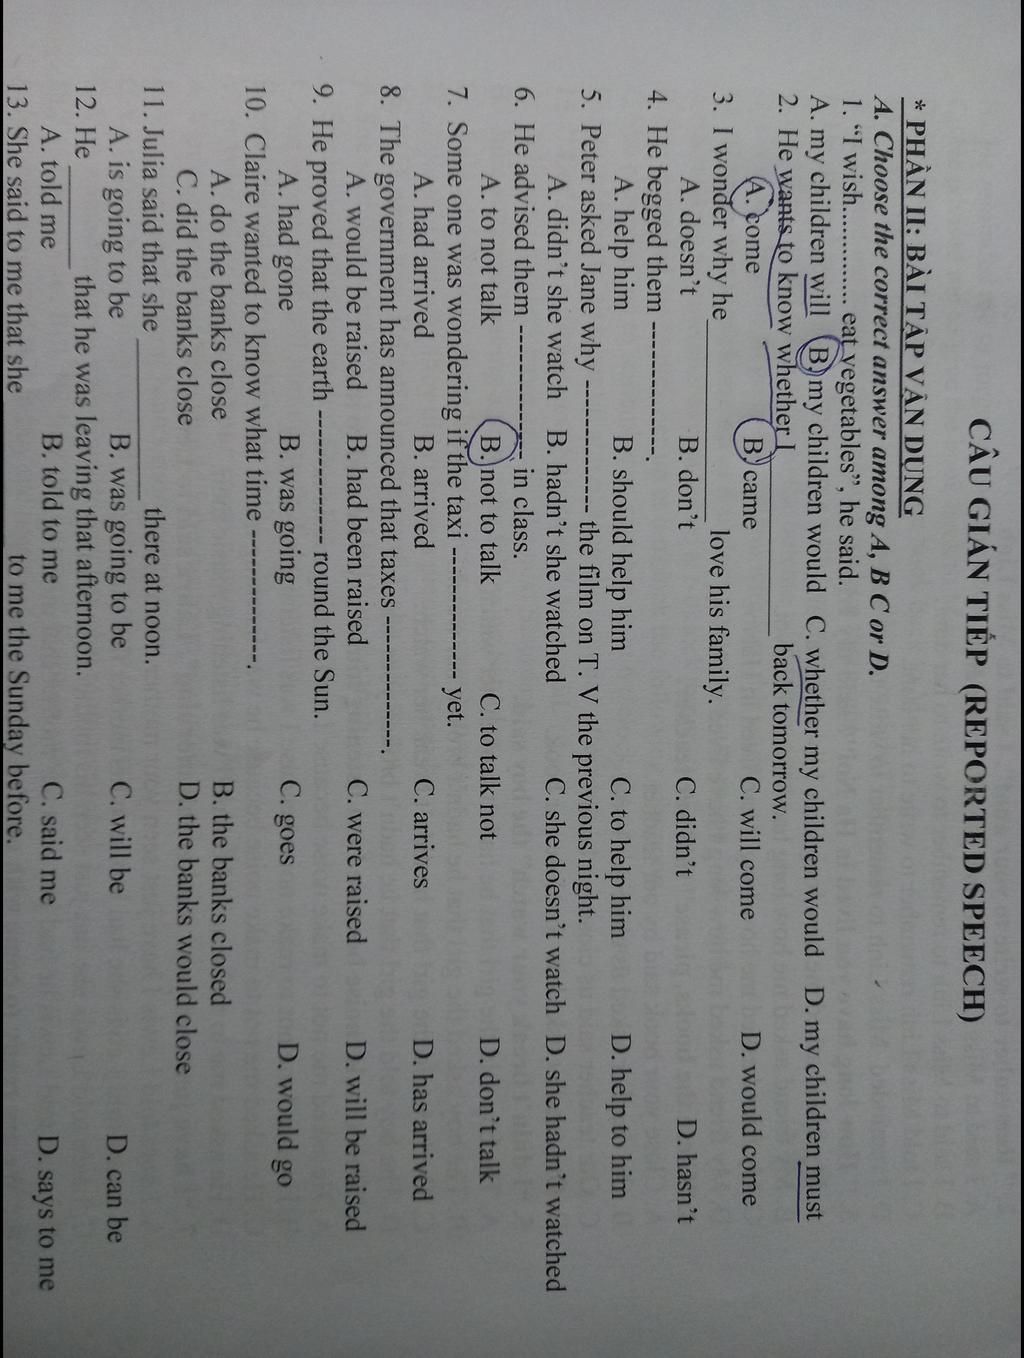 CÂU GIÁN TIẾP (REPORTED SPEECH)
* PHẦN II: BÀI TẬP VẬN DỤNG
A. Choose the correct answer among A, B C or D.
1. “I wish.............. eat vegetables”, he said.
A. my children will B. my children would C. whether my children would D. my children must
2. He wants to know whether I ____________ back tomorrow.
A. come B. came C. will come D. would come
3. I wonder why he ____________ love his family.
A. doesn’t B. don’t C. didn’t D. hasn’t
4. He begged them -------------.
A. help him B. should help him C. to help him D. help to him
5. Peter asked Jane why ------------- the film on T. V the previous night.
A. didn’t she watch B. hadn’t she watched C. she doesn’t watch D. she hadn’t watched
6. He advised them ------------- in class.
A. to not talk B. not to talk C. to talk not D. don’t talk
7. Some one was wondering if the taxi ------------- yet.
A. had arrived B. arrived C. arrives D. has arrived
8. The government has announced that taxes -------------.
A. would be raised B. had been raised C. were raised D. will be raised
9. He proved that the earth ------------- round the Sun.
A. had gone B. was going C. goes D. would go
10. Claire wanted to know what time -------------.
A. do the banks close B. the banks closed
C. did the banks close D. the banks would close
11. Julia said that she ____________ there at noon.
A. is going to be B. was going to be C. will be D. can be
12. He ________ that he was leaving that afternoon.
A. told me B. told to me C. said me D. says to me
13. She said to me that she ____________ to me the Sunday before.